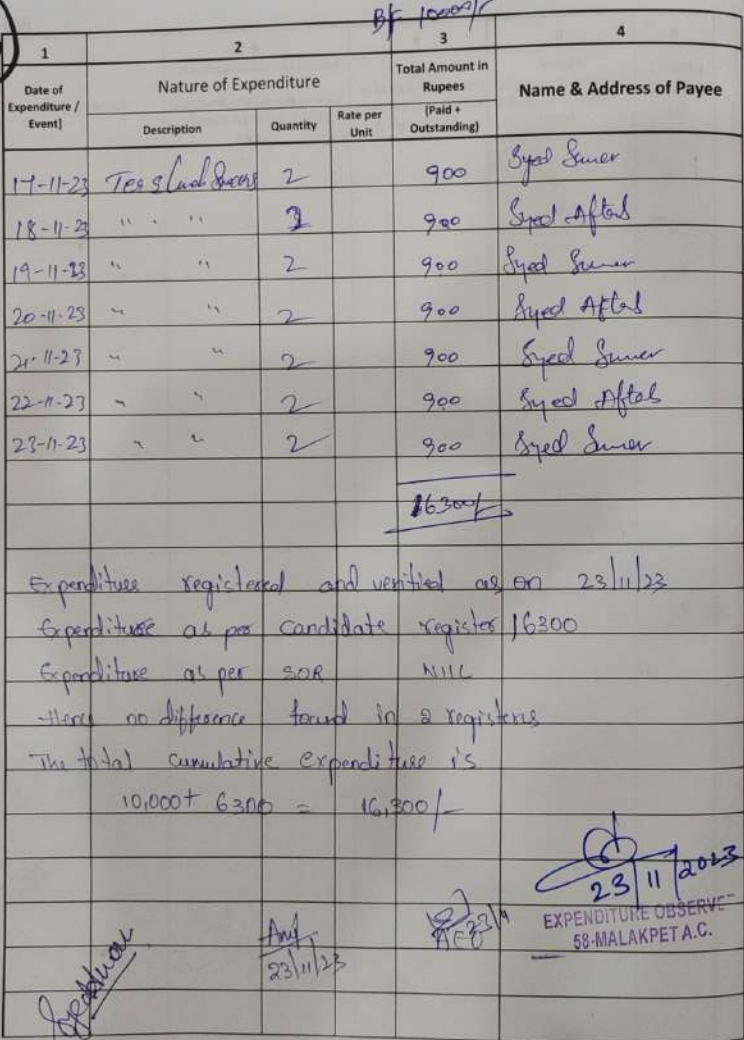 B/F 10000/-
1 2 3 4
Date of Expenditure / Event] Nature of Expenditure Total Amount in Rupees Name & Address of Payee
Description Quantity Rate per Unit (Paid + Outstanding)
17-11-23 2 900 Syed Sumer
18-11-23 " " 2 900 Syed Aftab
19-11-23 " " 2 900 Syed Sumer
20-11-23 " " 2 900 Syed Aftab
21-11-23 " " 2 900 Syed Sumer
22-11-23 " " 2 900 Syed Aftab
23-11-23 " " 2 900 Syed Sumer
16300/-
Expenditure registered and verified as on 23/11/23
Expenditure as per candidate register 16300
Expenditure as per SOR NIL
Henc no difference found in 2 registers
The total cumulative expenditure is
10,000 + 6300 = 16,300/-
23/11/2023
EXPENDITURE OBSERVE
58-MALAKPET A.C.
AEO
23/11/23